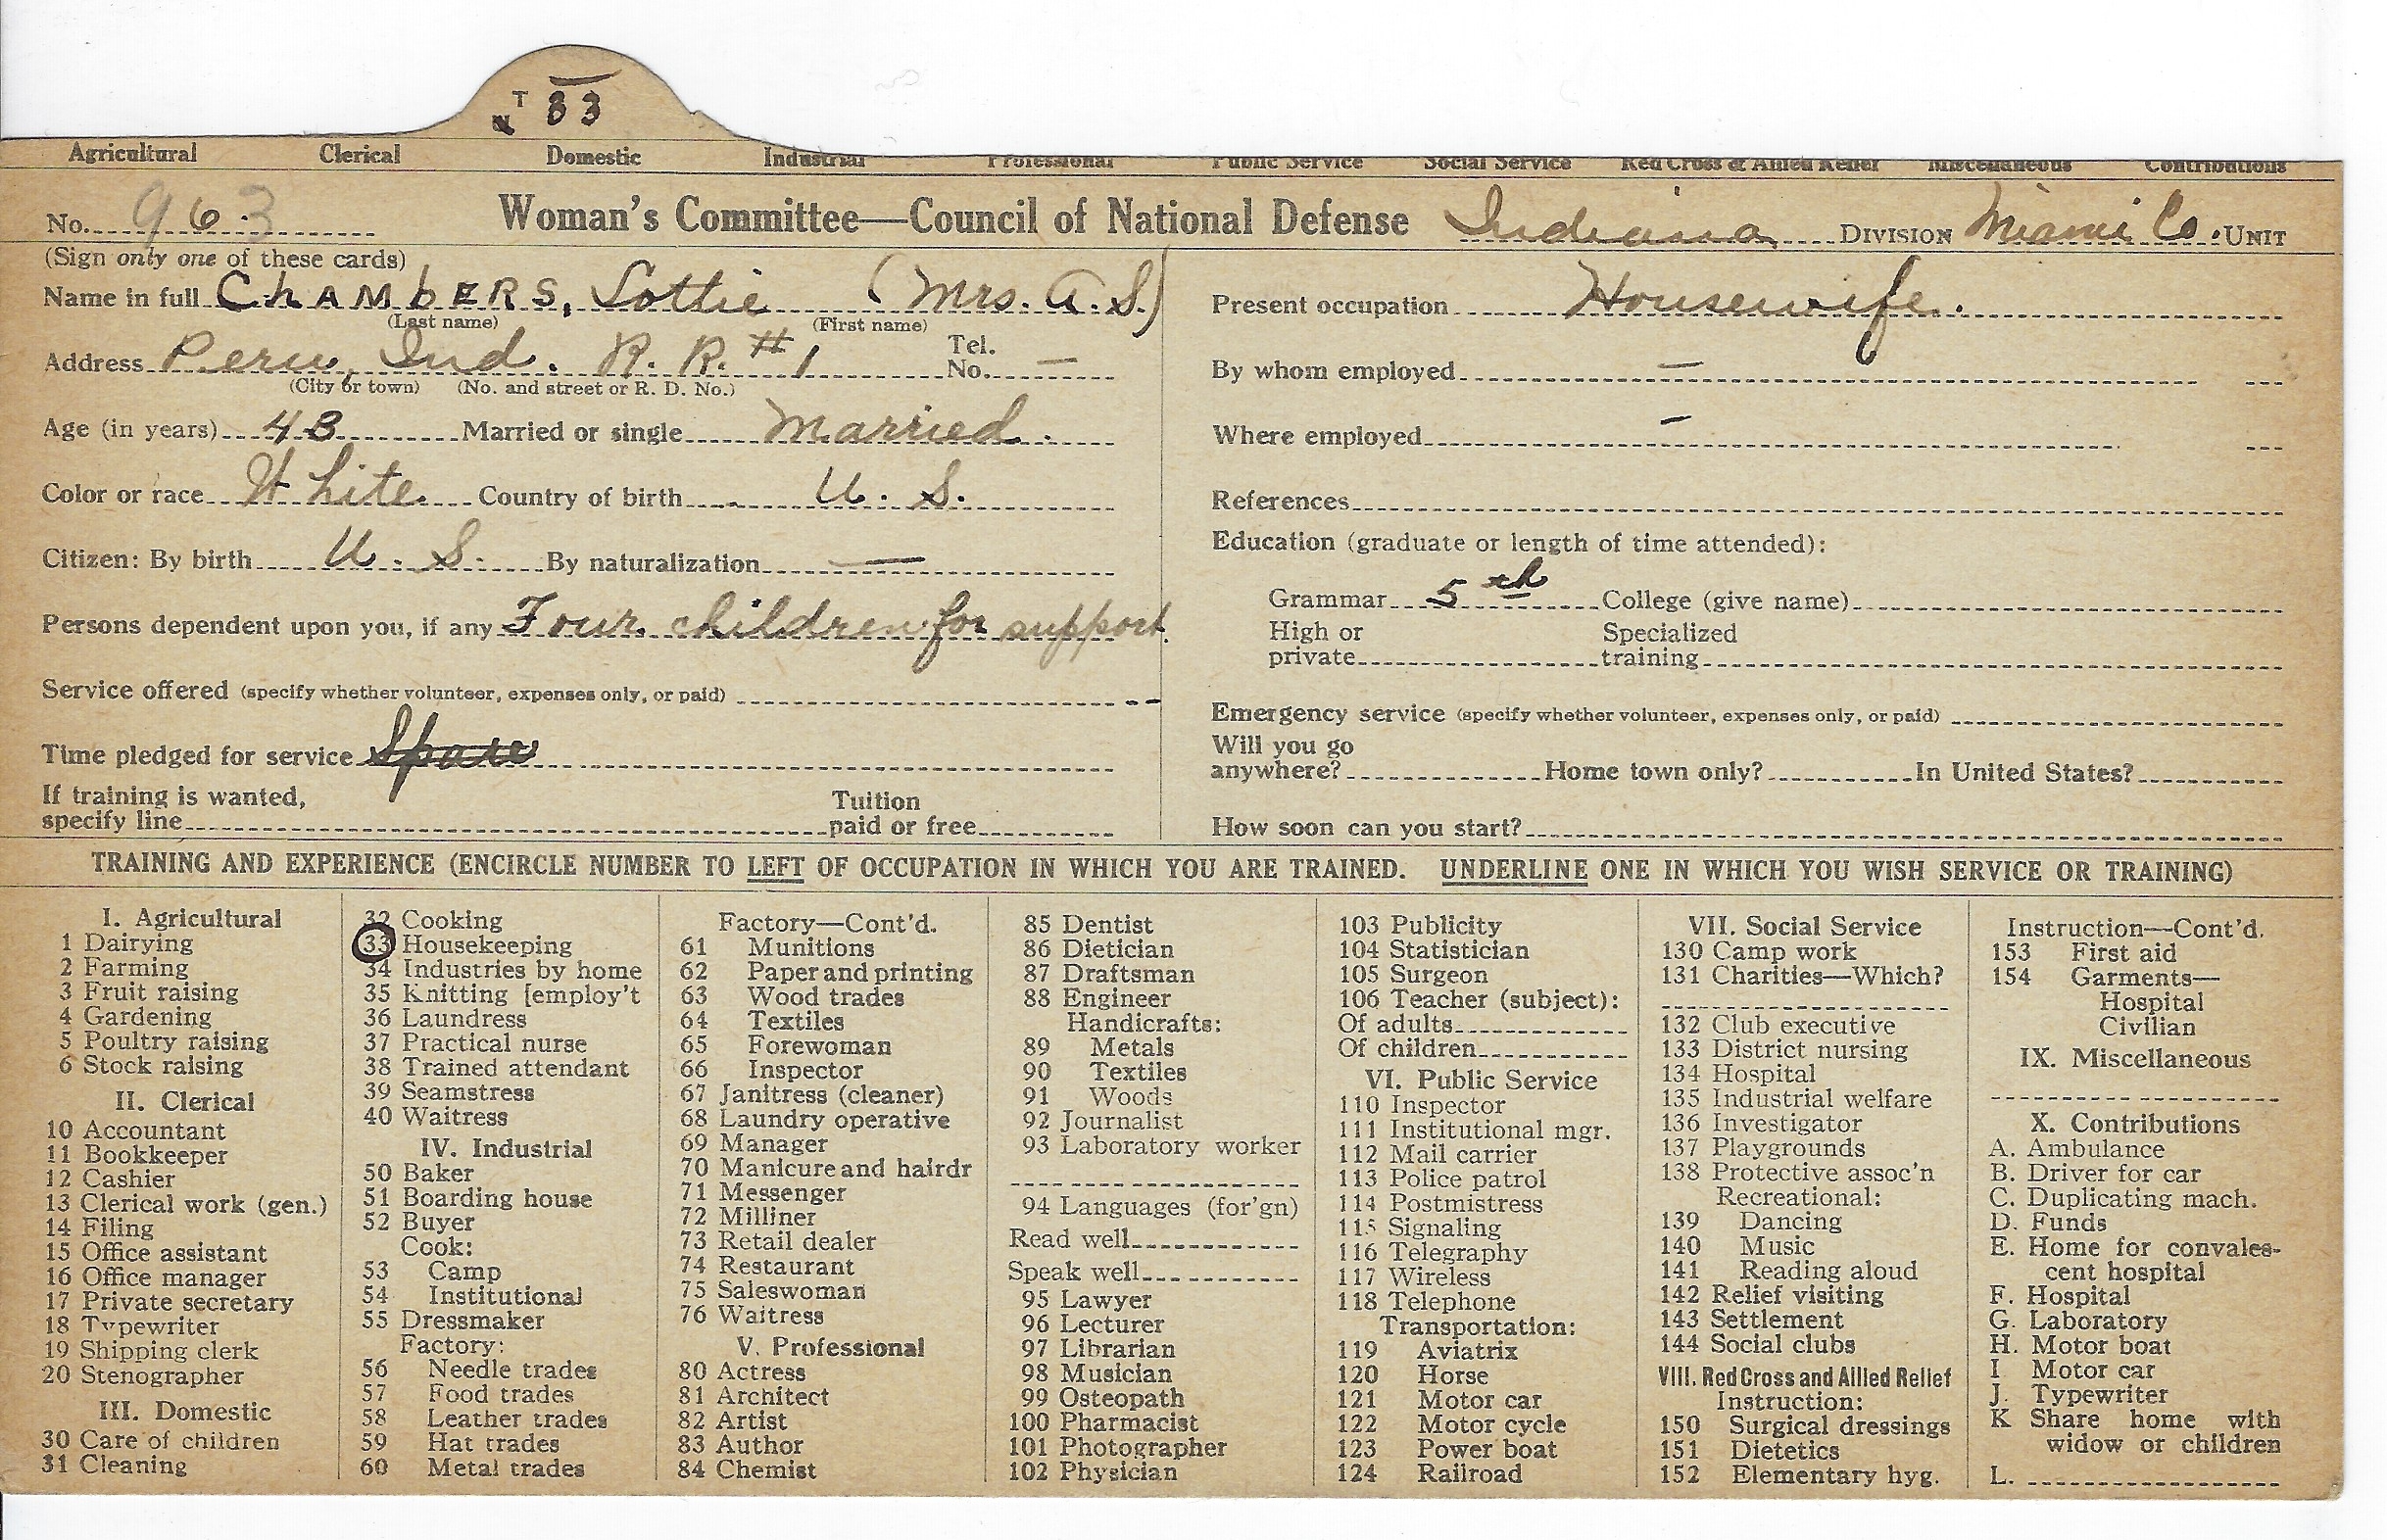 T 33
Agricultural Clerical Domestic Industrial Professional Public Service Social Service Red Cross & Allied Relief Miscellaneous Contributions
No. 963 Woman's Committee—Council of National Defense Indiana DIVISION Miami Co. UNIT
(Sign only one of these cards)
Name in full ChAMbERS, Lottie (Mrs. A. S.)
(Last name) (First name)
Address Peru, Ind. R. R. #1 Tel. No. —
(City or town) (No. and street or R. D. No.)
Age (in years) 43 Married or single Married.
Color or race White. Country of birth U. S.
Citizen: By birth U. S. By naturalization —
Persons dependent upon you, if any Four children for support.
Service offered (specify whether volunteer, expenses only, or paid)
Time pledged for service Spare
If training is wanted, specify line Tuition paid or free
Present occupation Housewife.
By whom employed —
Where employed —
References
Education (graduate or length of time attended):
Grammar 5th College (give name)
High or private Specialized training
Emergency service (specify whether volunteer, expenses only, or paid)
Will you go anywhere? Home town only? In United States?
How soon can you start?
TRAINING AND EXPERIENCE (ENCIRCLE NUMBER TO LEFT OF OCCUPATION IN WHICH YOU ARE TRAINED. UNDERLINE ONE IN WHICH YOU WISH SERVICE OR TRAINING)
I. Agricultural
1 Dairying
2 Farming
3 Fruit raising
4 Gardening
5 Poultry raising
6 Stock raising
II. Clerical
10 Accountant
11 Bookkeeper
12 Cashier
13 Clerical work (gen.)
14 Filing
15 Office assistant
16 Office manager
17 Private secretary
18 Typewriter
19 Shipping clerk
20 Stenographer
III. Domestic
30 Care of children
31 Cleaning
32 Cooking
33 Housekeeping
34 Industries by home
35 Knitting [employ't
36 Laundress
37 Practical nurse
38 Trained attendant
39 Seamstress
40 Waitress
IV. Industrial
50 Baker
51 Boarding house
52 Buyer
Cook:
53 Camp
54 Institutional
55 Dressmaker
Factory:
56 Needle trades
57 Food trades
58 Leather trades
59 Hat trades
60 Metal trades
Factory—Cont'd.
61 Munitions
62 Paper and printing
63 Wood trades
64 Textiles
65 Forewoman
66 Inspector
67 Janitress (cleaner)
68 Laundry operative
69 Manager
70 Manicure and hairdr
71 Messenger
72 Milliner
73 Retail dealer
74 Restaurant
75 Saleswoman
76 Waitress
V. Professional
80 Actress
81 Architect
82 Artist
83 Author
84 Chemist
85 Dentist
86 Dietician
87 Draftsman
88 Engineer
Handicrafts:
89 Metals
90 Textiles
91 Woods
92 Journalist
93 Laboratory worker
94 Languages (for'gn)
Read well
Speak well
95 Lawyer
96 Lecturer
97 Librarian
98 Musician
99 Osteopath
100 Pharmacist
101 Photographer
102 Physician
103 Publicity
104 Statistician
105 Surgeon
106 Teacher (subject):
Of adults
Of children
VI. Public Service
110 Inspector
111 Institutional mgr.
112 Mail carrier
113 Police patrol
114 Postmistress
115 Signaling
116 Telegraphy
117 Wireless
118 Telephone
Transportation:
119 Aviatrix
120 Horse
121 Motor car
122 Motor cycle
123 Power boat
124 Railroad
VII. Social Service
130 Camp work
131 Charities—Which?
132 Club executive
133 District nursing
134 Hospital
135 Industrial welfare
136 Investigator
137 Playgrounds
138 Protective assoc'n
Recreational:
139 Dancing
140 Music
141 Reading aloud
142 Relief visiting
143 Settlement
144 Social clubs
VIII. Red Cross and Allied Relief
Instruction:
150 Surgical dressings
151 Dietetics
152 Elementary hyg.
Instruction—Cont'd.
153 First aid
154 Garments—
Hospital
Civilian
IX. Miscellaneous
X. Contributions
A. Ambulance
B. Driver for car
C. Duplicating mach.
D. Funds
E. Home for convales-
cent hospital
F. Hospital
G. Laboratory
H. Motor boat
I Motor car
J. Typewriter
K Share home with
widow or children
L.